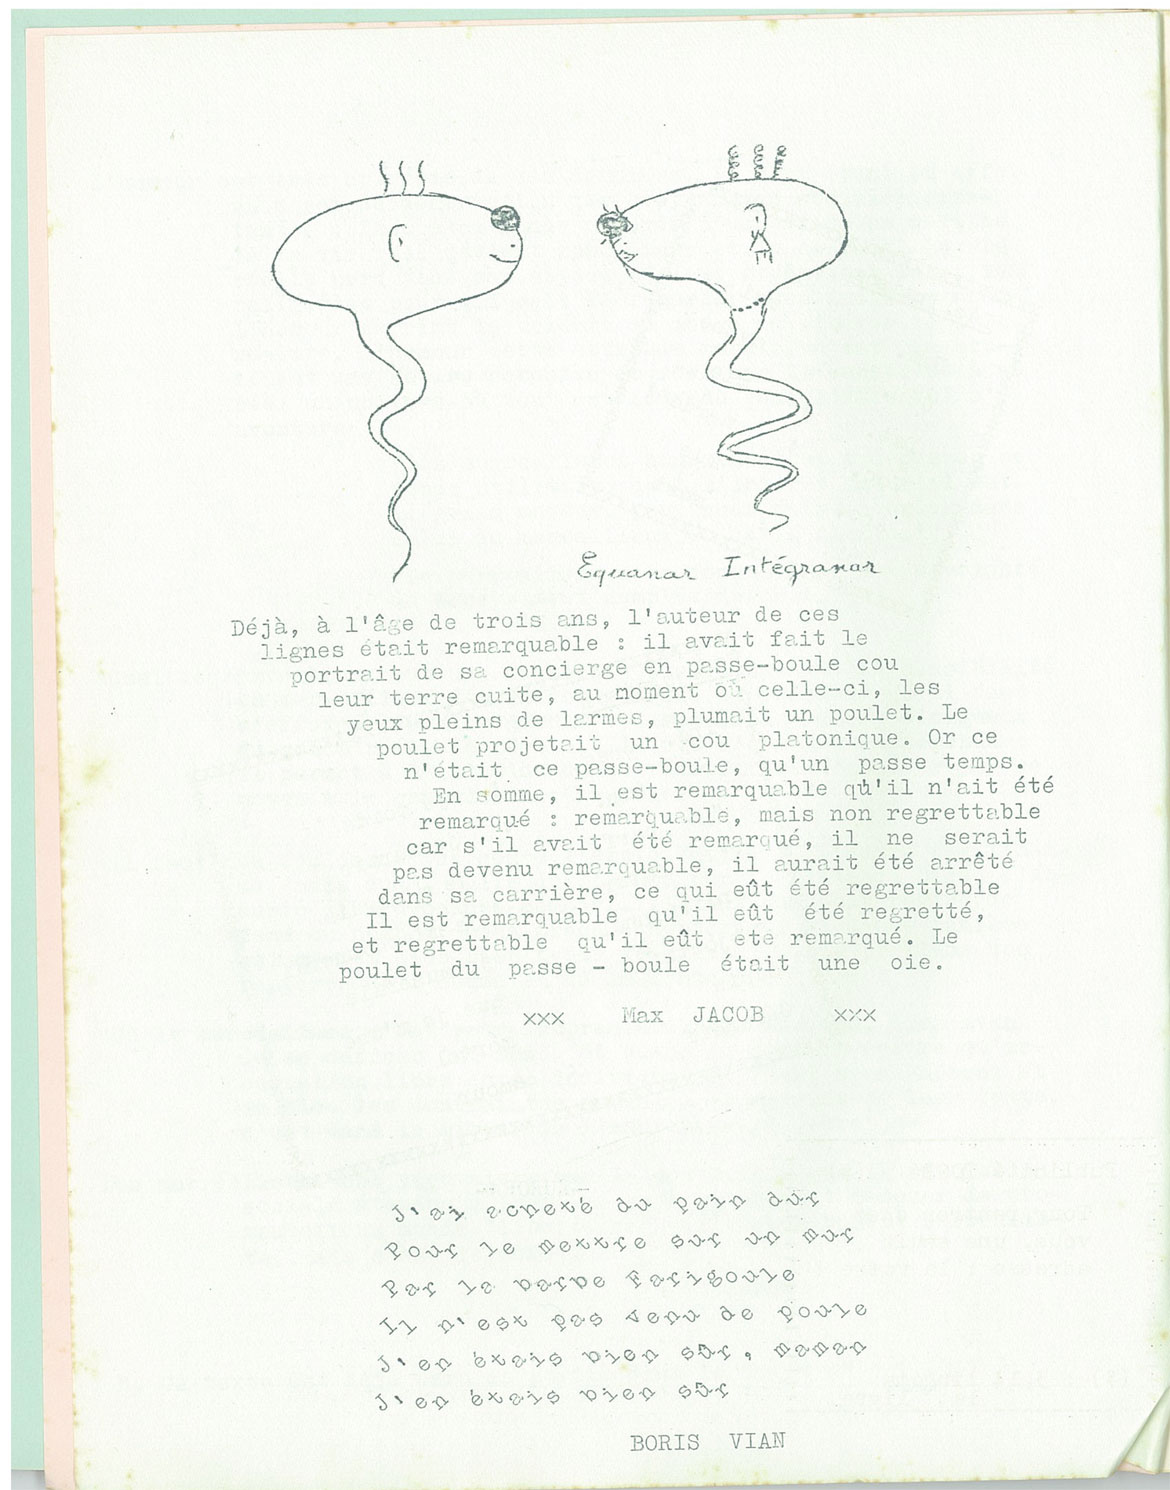 Equanar Intégranar
Déjà, à l'âge de trois ans, l'auteur de ces
lignes était remarquable : il avait fait le
portrait de sa concierge en passe-boule cou
leur terre cuite, au moment où celle-ci, les
yeux pleins de larmes, plumait un poulet. Le
poulet projetait un cou platonique. Or ce
n'était ce passe-boule, qu'un passe temps.
En somme, il est remarquable qu'il n'ait été
remarqué : remarquable, mais non regrettable
car s'il avait été remarqué, il ne serait
pas devenu remarquable, il aurait été arrêté
dans sa carrière, ce qui eût été regrettable
Il est remarquable qu'il eût été regretté,
et regrettable qu'il eût ete remarqué. Le
poulet du passe - boule était une oie.
xxx Max JACOB xxx
J'ai acheté du pain dur
Pour le mettre sur un mur
Par la barbe Farigoule
Il n'est pas venu de poule
J'en étais bien sûr, maman
J'en étais bien sûr
BORIS VIAN